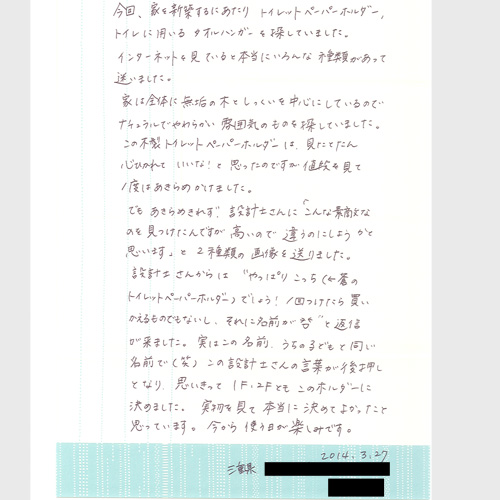 今回、家を新築するにあたり トイレットペーパーホルダー,
トイレに用いる タオルハンガーを探していました。
インターネットを見ていると本当にいろんな 種類があって
迷いました。
家は全体に無垢の木としっくいを中心にしているので
ナチュラルでやわらかい 雰囲気のものを探していました。
この木製トイレットペーパーホルダーは、見たとたん
心ひかれて いいな!と 思ったのですが 値段を見て
1度はあきらめかけました。
でも あきらめきれず!設計士さんに「こんな素敵な
のを見つけたんですが 高いので 違うのにしようかと
思います」と 2種類の画像を送りました。
設計士さんからは "やっぱり こっち(←蒼の
トイレットペーパーホルダー)でしょう!1回つけたら買い
かえるものでもないし、それに名前が "と 返信
が来ました。実はこの名前、うちの子どもと同じ
名前で(笑)この設計士さんの言葉が後押し
となり、思いきって 1F・2Fとも このホルダーに
決めました。 実物を見て 本当に 決めてよかったこと
思っています。 今から 使う日が 楽しみです。
2014.3.27
三重県